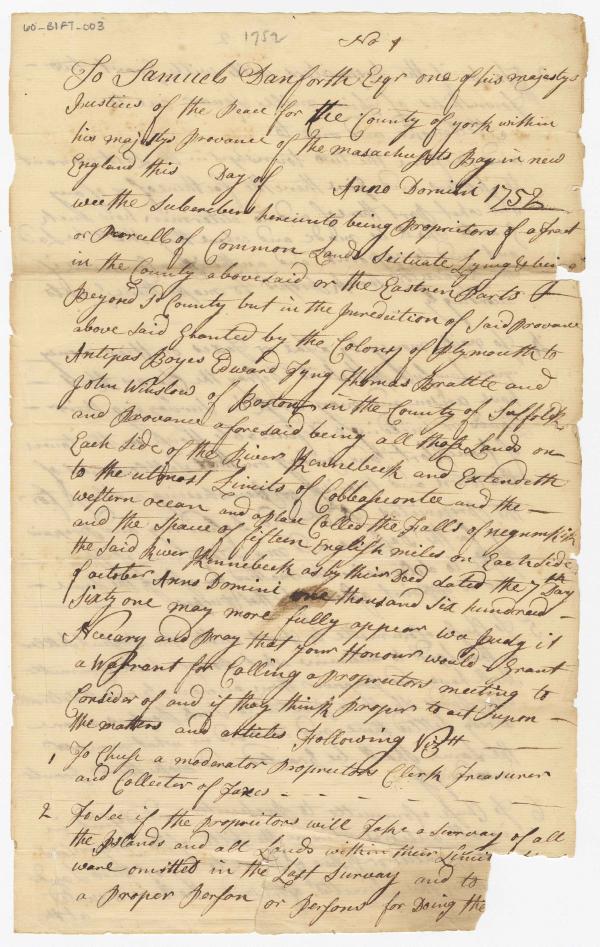 60-B1F7-003
1752
No 1
To Samuels Danforth Esqr one of his majestys
Justices of the Peace for the County of york within
his majestys Provance of the masachusets Bay in new
England this Day of Anno Domini 1752
wee the Subscribers hereunto being Proprietors of a Tract
or Parcell of Common Lands Scituate Lying & being
in the County abovesaid or the Eastren Parts
Beyond Sd County but in the Jurediction of Said Provance
above said Granted by the Colony of Plymouth to
Antipas Boyes Edward Tyng Thomas Brattle and
John Winslow of Boston in the County of Suffolk
and Provance aforesaid being all those Lands on
Each Side of the River Kennebeck and Extendeth
to the utmost Limits of Cobbeseconte and the
western ocean and a place Called the Falls of negumkik
and the Space of fifteen English miles on Each Side
the Said River Kennebeck as by their Deed dated the 7th Day
of october Anno Domini one thousand Six hundred
Sixty one may more fully appear we Judg it
Necesary and Pray that your Honour would Grant
a Warrant for Calling a Proprietors meeting to
Consider of and if they think Proper to act Jupon
the matters and articles Following Vizt
1 To Chuse a moderator Proprietors Clerk Treasurer
and Collecter of Taxes
2 To See if the proprietors will Take a Survay of all
the Islands and all Lands within their
ware omitted in the Last Survay and to
a Proper Person or Persons for Doing the